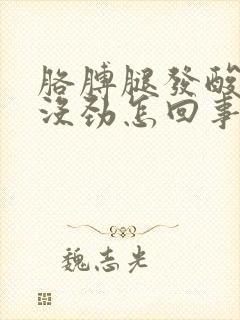 胳膊腿發酸
沒勁怎回事
魏志光